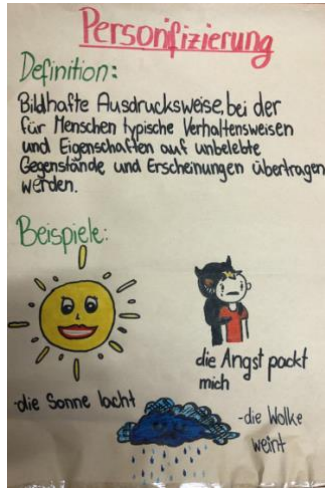 Personifizierung
Definition:
Bildhafte Ausdrucksweise, bei der
für Menschen typische Verhaltensweisen
und Eigenschaften auf unbelebte
Gegenstände und Erscheinungen übertragen
werden.
Beispiele:
die Angst packt
mich
-die Sonne lacht
-die Wolke
weint